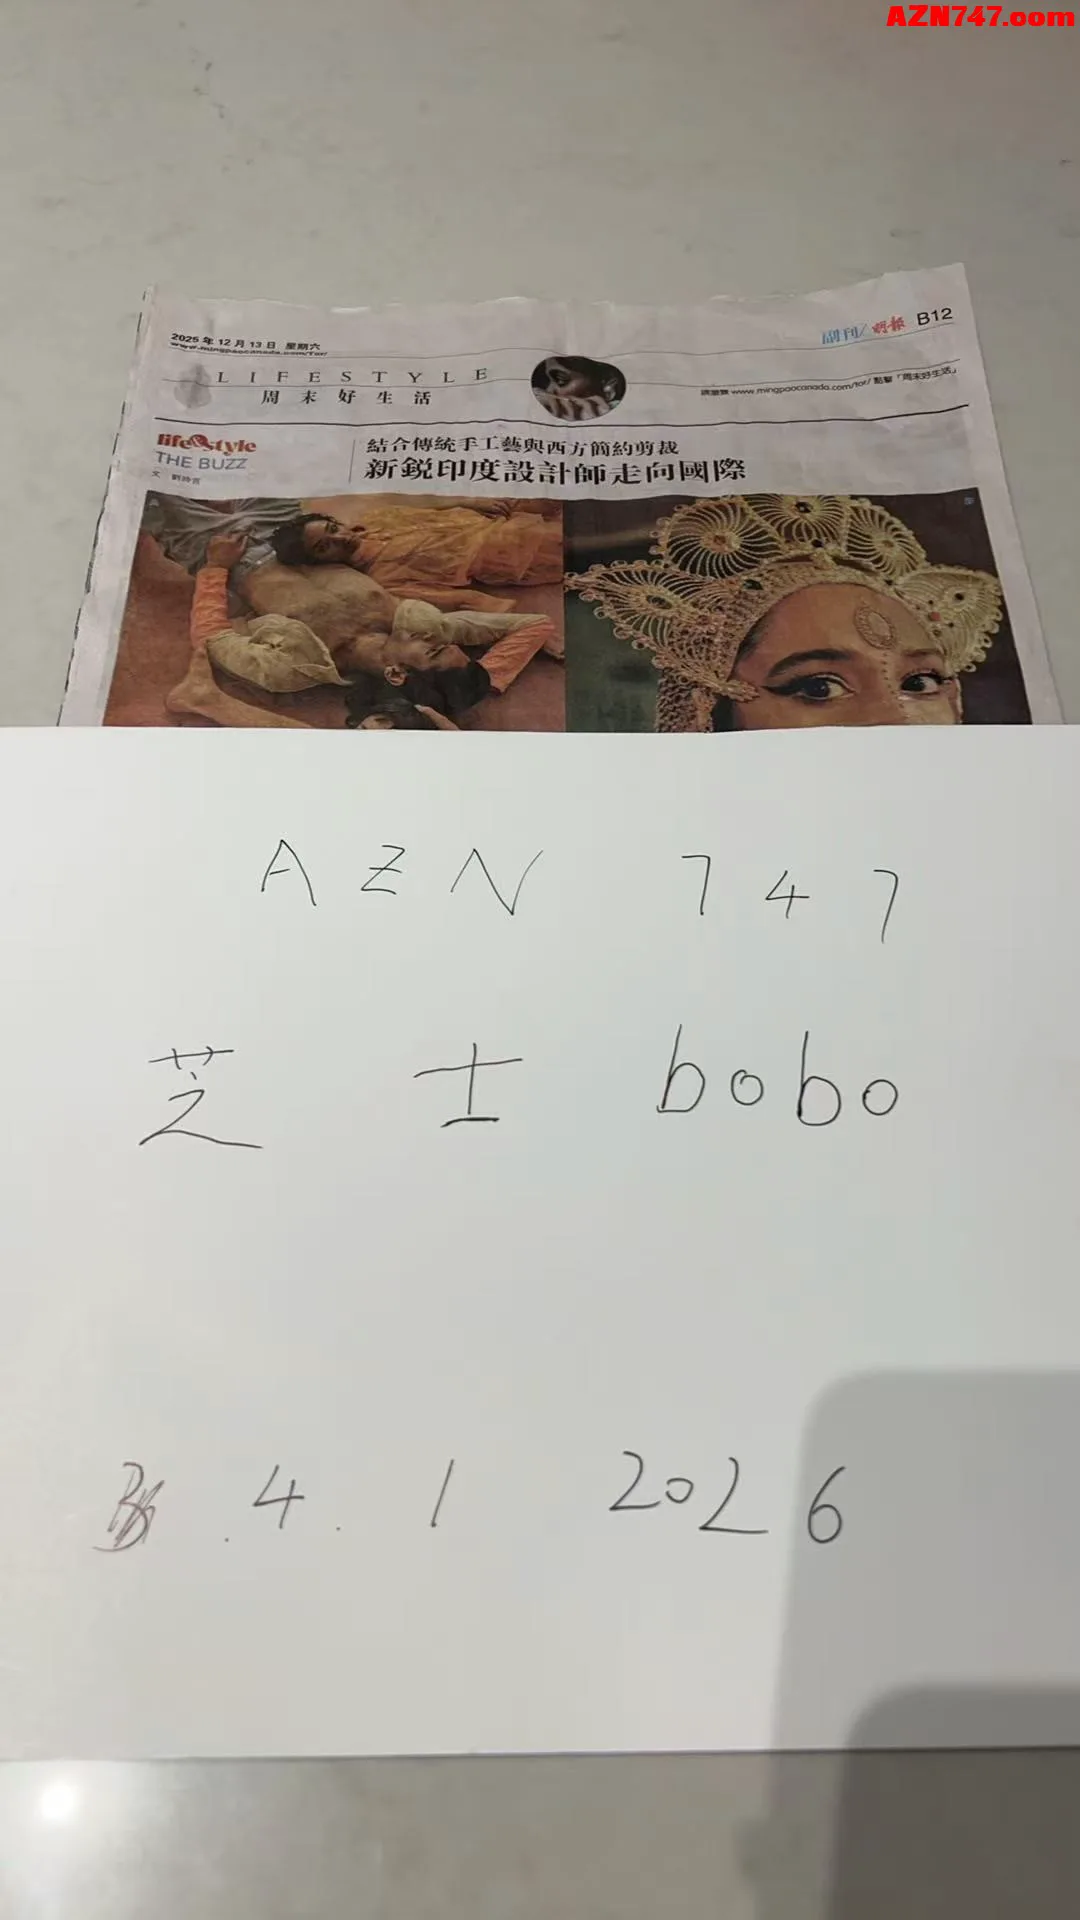 AZN747.com
2025 年 12 月 13 日 星期六
www.mingpaocanada.com/tor/
副刊/ 明報 B12
LIFESTYLE
周末好生活
www.mingpaocanada.com/tor/ 點擊「周末好生活」
life&style
THE BUZZ
結合傳統手工藝與西方簡約剪裁
新銳印度設計師走向國際
AZN 747
芝士bobo
.4.1 2026